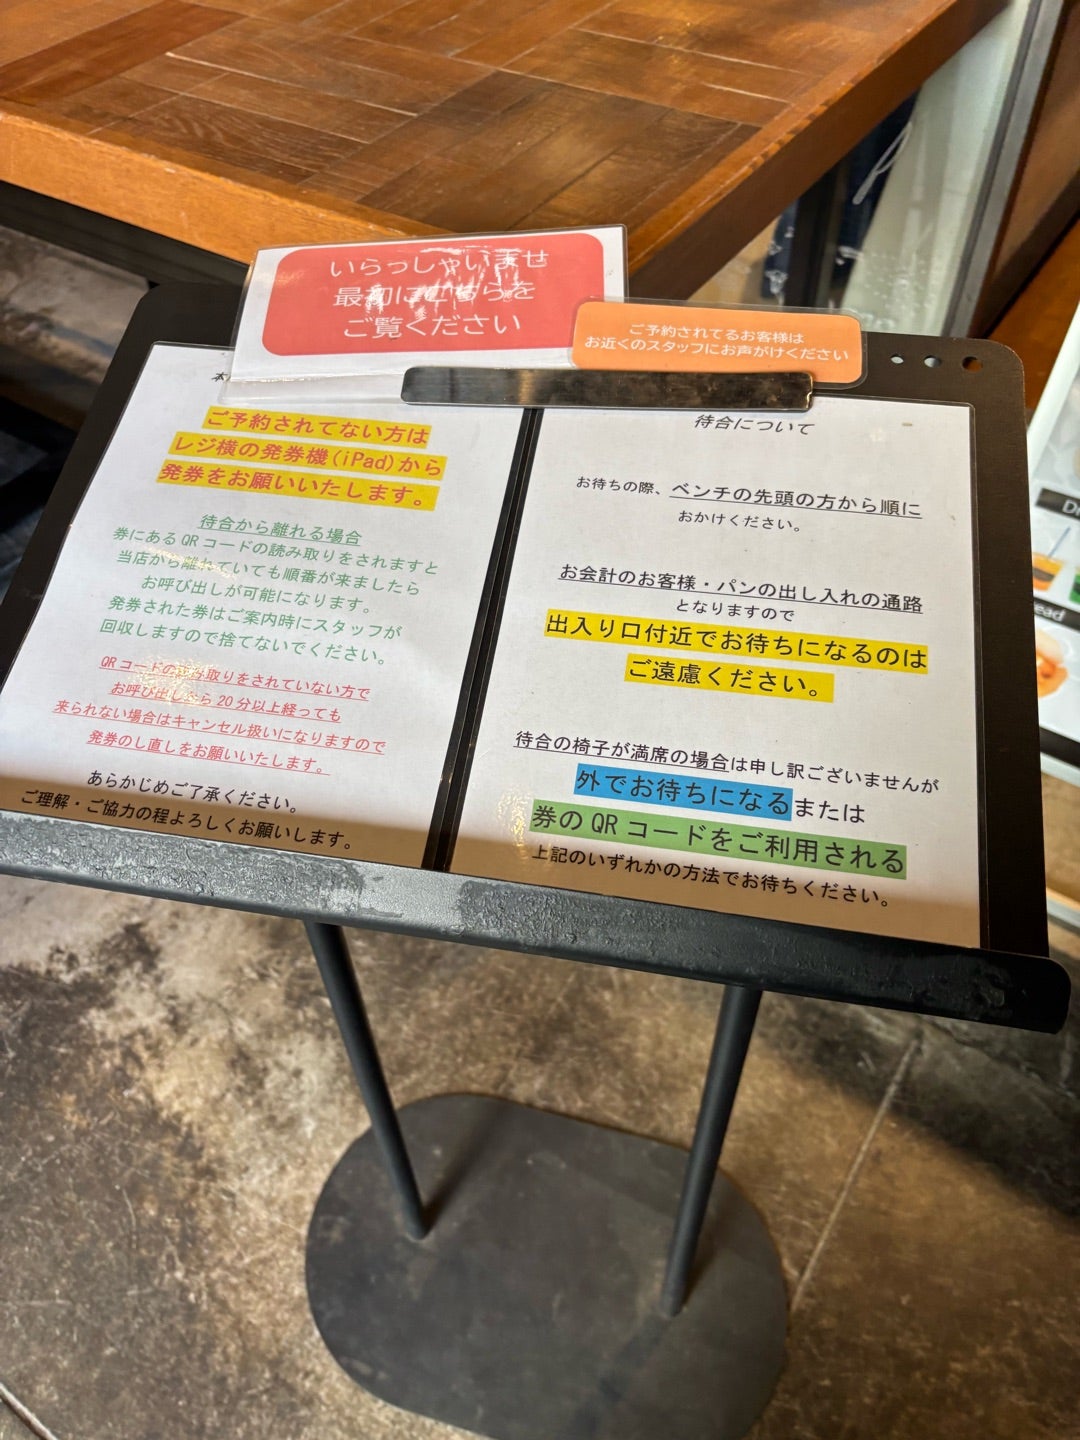 いらっしゃいませ
最初にこちらを
ご覧ください
ご予約されてるお客様は
お近くのスタッフにお声がけください
本
ご予約されてない方は
レジ横の発券機(iPad)から
発券をお願いいたします。
待合から離れる場合
券にあるQRコードの読み取りをされますと
当店から離れていても順番が来ましたら
お呼び出しが可能になります。
発券された券はご案内時にスタッフが
回収しますので捨てないでください。
QRコードの読み取りをされていない方で
お呼び出しから20分以上経っても
来られない場合はキャンセル扱いになりますので
発券のし直しをお願いいたします。
あらかじめご了承ください。
ご理解・ご協力の程よろしくお願いします。
待合について
お待ちの際、ベンチの先頭の方から順に
おかけください。
お会計のお客様・パンの出し入れの通路
となりますので
出入り口付近でお待ちになるのは
ご遠慮ください。
待合の椅子が満席の場合は申し訳ございませんが
外でお待ちになるまたは
券のQRコードをご利用される
上記のいずれかの方法でお待ちください。